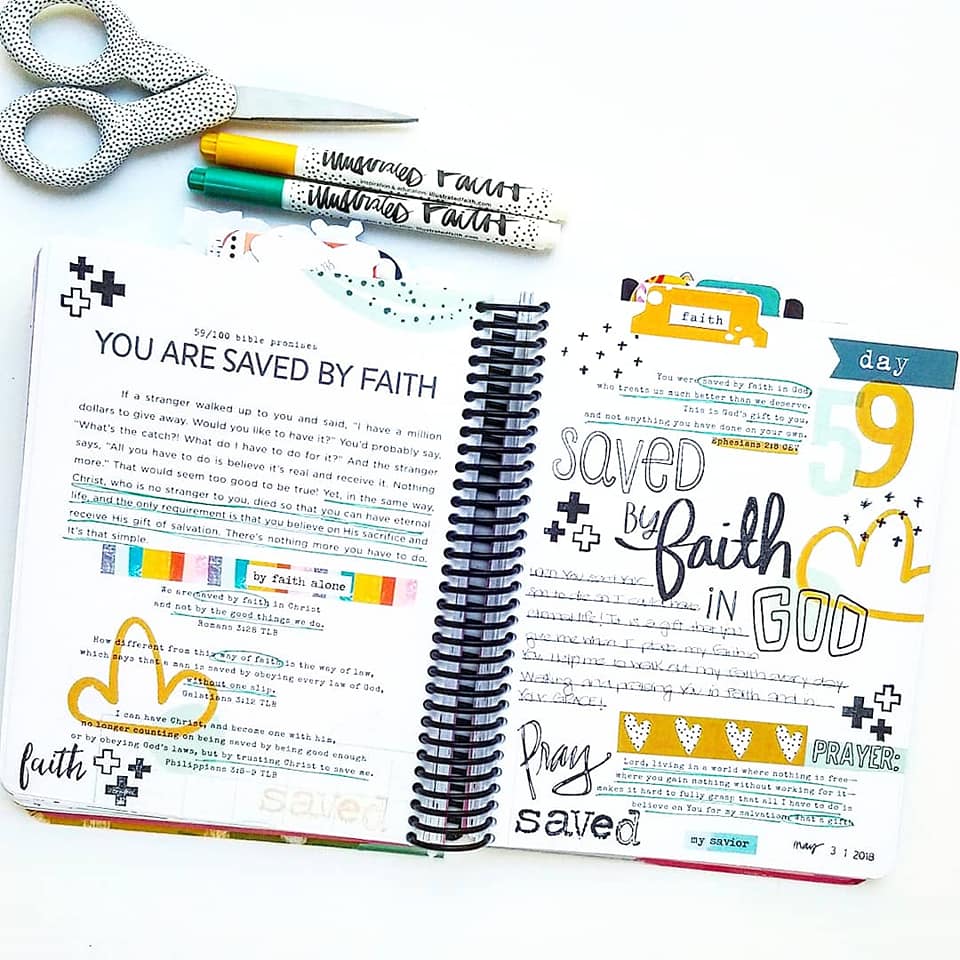 illustrated Faith
inspiration & education. illustratedfaith.com
illustrated Faith
59/100 bible promises
YOU ARE SAVED BY FAITH
If a stranger walked up to you and said, "I have a million
dollars to give away. Would you like to have it?" You'd probably say,
"What's the catch?! What do I have to do for it?" And the stranger
says, "All you have to do is believe it's real and receive it. Nothing
more." That would seem too good to be true! Yet, in the same way,
Christ, who is no stranger to you, died so that you can have eternal
life, and the only requirement is that you believe on His sacrifice and
receive His gift of salvation. There's nothing more you have to do.
It's that simple.
by faith alone
We are saved by faith in Christ
and not by the good things we do.
Romans 3:28 TLB
How different from this way of faith is the way of law,
which says that a man is saved by obeying every law of God,
without one slip.
Galatians 3:12 TLB
I can have Christ, and become one with him,
no longer counting on being saved by being good enough
or by obeying God's laws, but by trusting Christ to save me.
Philippians 3:8-9 TLB
faith
saved
faith
day
59
You were saved by faith in God,
who treats us much better than we deserve.
This is God's gift to you,
and not anything you have done on your own.
Ephesians 2:8 CEV
saved
By faith
in GOD
eternal life! It is a gift that you
give me when I pass my faith in
You. Help me to walk out my faith every day.
Waiting and praising You in Faith and in
Your GRACE!
Pray
PRAYER:
Lord, living in a world where nothing is free—
where you gain nothing without working for it—
makes it hard to fully grasp that all I have to do is
believe on You for my salvation. What a gift.
saved
my savior
may 31 2018